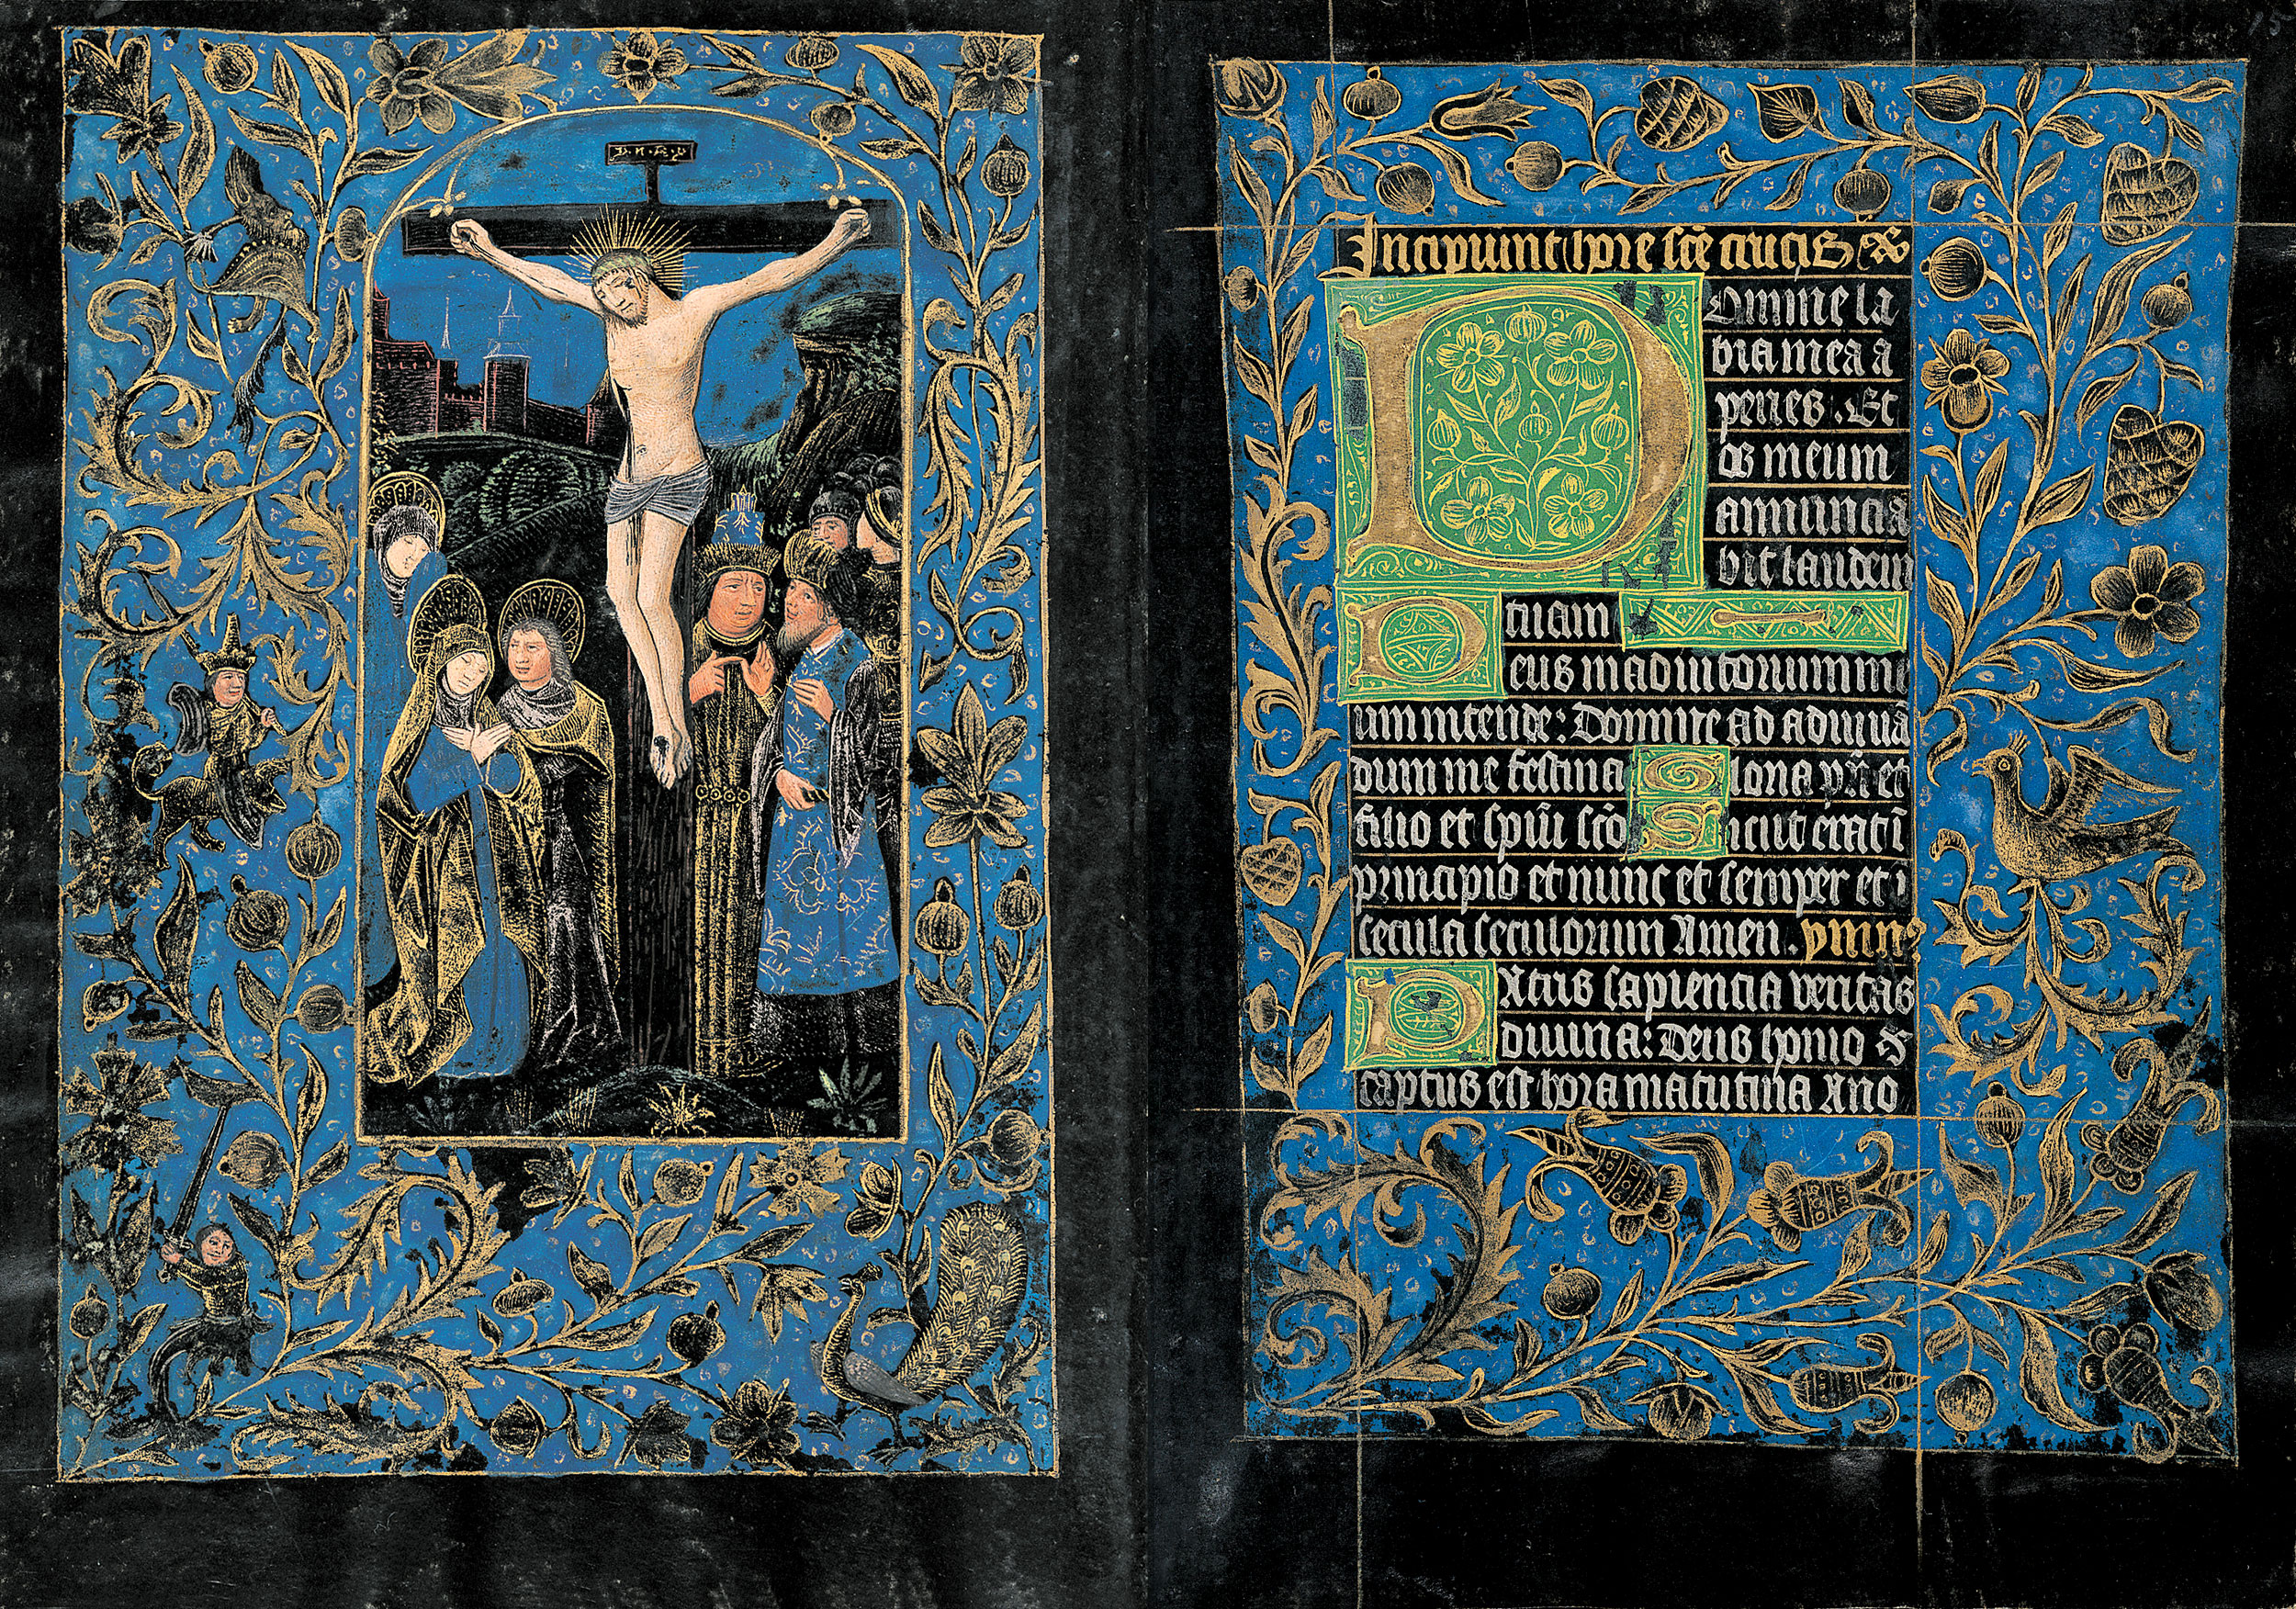 ·I·N·R·I·
15
Incipiunt hore scē crucis
Domine la
bia mea a
peries . Et
os meum
annuncia
bit laudem
tuam
Deus in adiutorium me
um intende: Domine ad adiuuā
dum me festina Gloria pr̄i et
filio et spūi scō Sicut erat ī
principio et nunc et semper et i
secula seculorum Amen . ymn9
Patris sapiencia veritas
diuina: Deus homo
captus est hora matutina A no